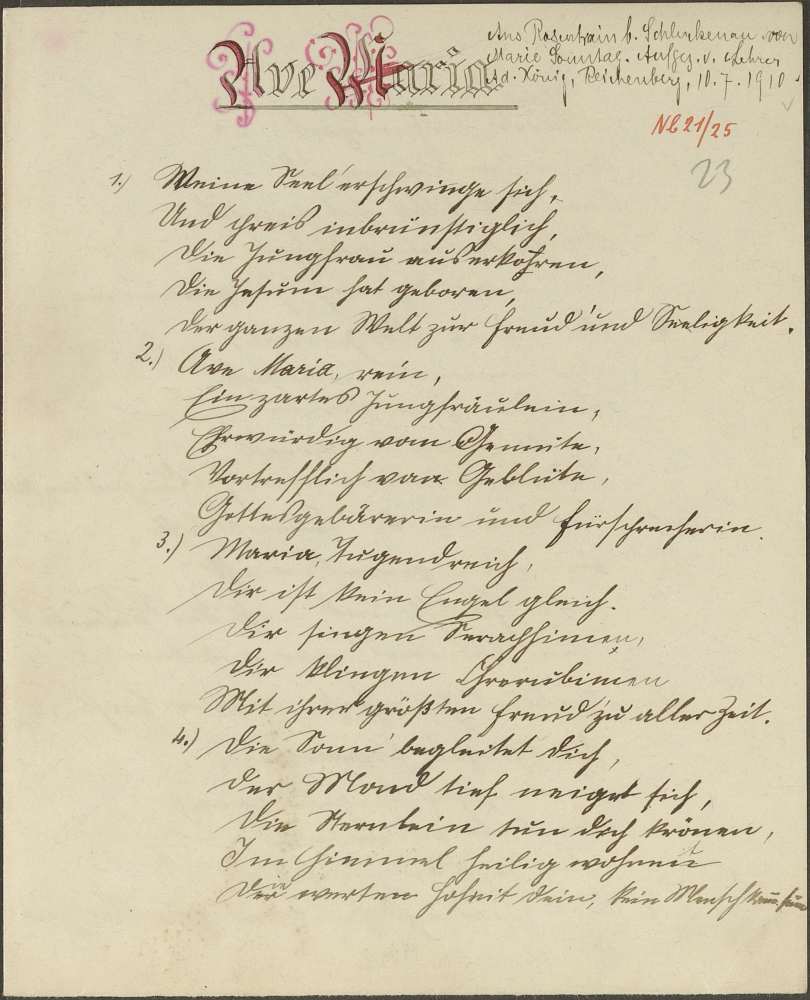 Ave Maria
Aus Rosenhain b. Schluckenau von
Marie Sonntag. Aufgez. v. Lehrer
Ad. König, Reichenberg, 10.7.1910.
Nb 21/25
23
1.) Meine Seel' erschwinge sich,
Und preis inbrünstiglich,
Die Jungfrau auserkohren,
Die Jesum hat geboren,
Der ganzen Welt zur Freud' und Seeligkeit.
2.) Ave Maria, rein,
Ein zartes Jungfräulein,
Ehrwürdig vom Gemüte,
Vortrefflich vom Geblüte,
Gottesgebärerin und Fürsprecherin.
3.) Maria, Tugendreich,
Dir ist kein Engel gleich.
Dir singen Seraphimen,
Dir klingen Cherubimen
Mit ihrer größten Freud' zu aller Zeit.
4.) Die Sonn' begleitet dich,
Der Mond tief neiget sich,
Die Sternlein tun dich krönen,
Im Himmel heilig wohnen
Die werten Hoheit dein, kein Mensch kann